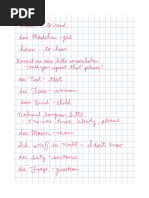 to read
das Mädchen - girl
hören - to hear
Könnt ihr das bitte wiederholen
- Could you repeat that please?
der Text - text
die Frau - woman
das Kind - child
Nochmal langsam bitte
- Once more, slowly, please
der Mann - man
Ich weiß es nicht - I don't know
der Satz - sentence
die Frage - question